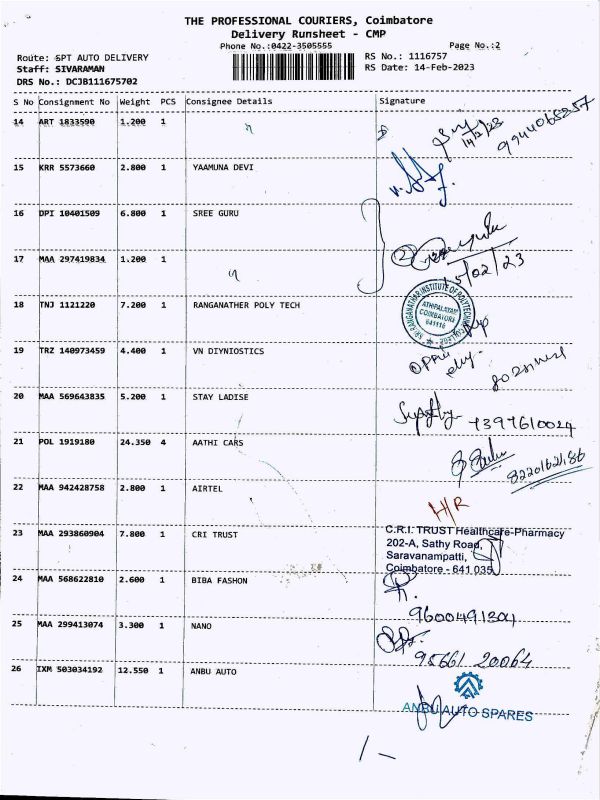 THE PROFESSIONAL COURIERS, Coimbatore
Delivery Runsheet - CMP
Phone No.:0422-3505555
Page No.:2
Route: SPT AUTO DELIVERY
RS No.: 1116757
Staff: SIVARAMAN
RS Date: 14-Feb-2023
DRS No.: DCJB111675702
S No Consignment No Weight PCS Consignee Details Signature
14 ART 1833590 1.200 1
14/2/23
9944065257
15 KRR 5573660 2.800 1 YAAMUNA DEVI
16 DPI 10401509 6.800 1 SREE GURU
17 MAA 297419834 1.200 1
15/02/23
18 TNJ 1121220 7.200 1 RANGANATHER POLY TECH
SRI RANGANATHAR INSTITUTE OF POLYTECHNIC COLLEGE
ATHIPALAYAM
COIMBATORE
641110
19 TRZ 140973459 4.400 1 VN DIYNIOSTICS
20 MAA 569643835 5.200 1 STAY LADISE
7397610024
21 POL 1919180 24.350 4 AATHI CARS
8220162186
22 MAA 942428758 2.800 1 AIRTEL
H/R
23 MAA 293860904 7.800 1 CRI TRUST
C.R.I. TRUST Healthcare-Pharmacy
202-A, Sathy Road,
Saravanampatti,
Coimbatore - 641 035
24 MAA 568622810 2.600 1 BIBA FASHON
9600491301
25 MAA 299413074 3.300 1 NANO
95661 20064
26 IXM 503034192 12.550 1 ANBU AUTO
ANBU AUTO SPARES